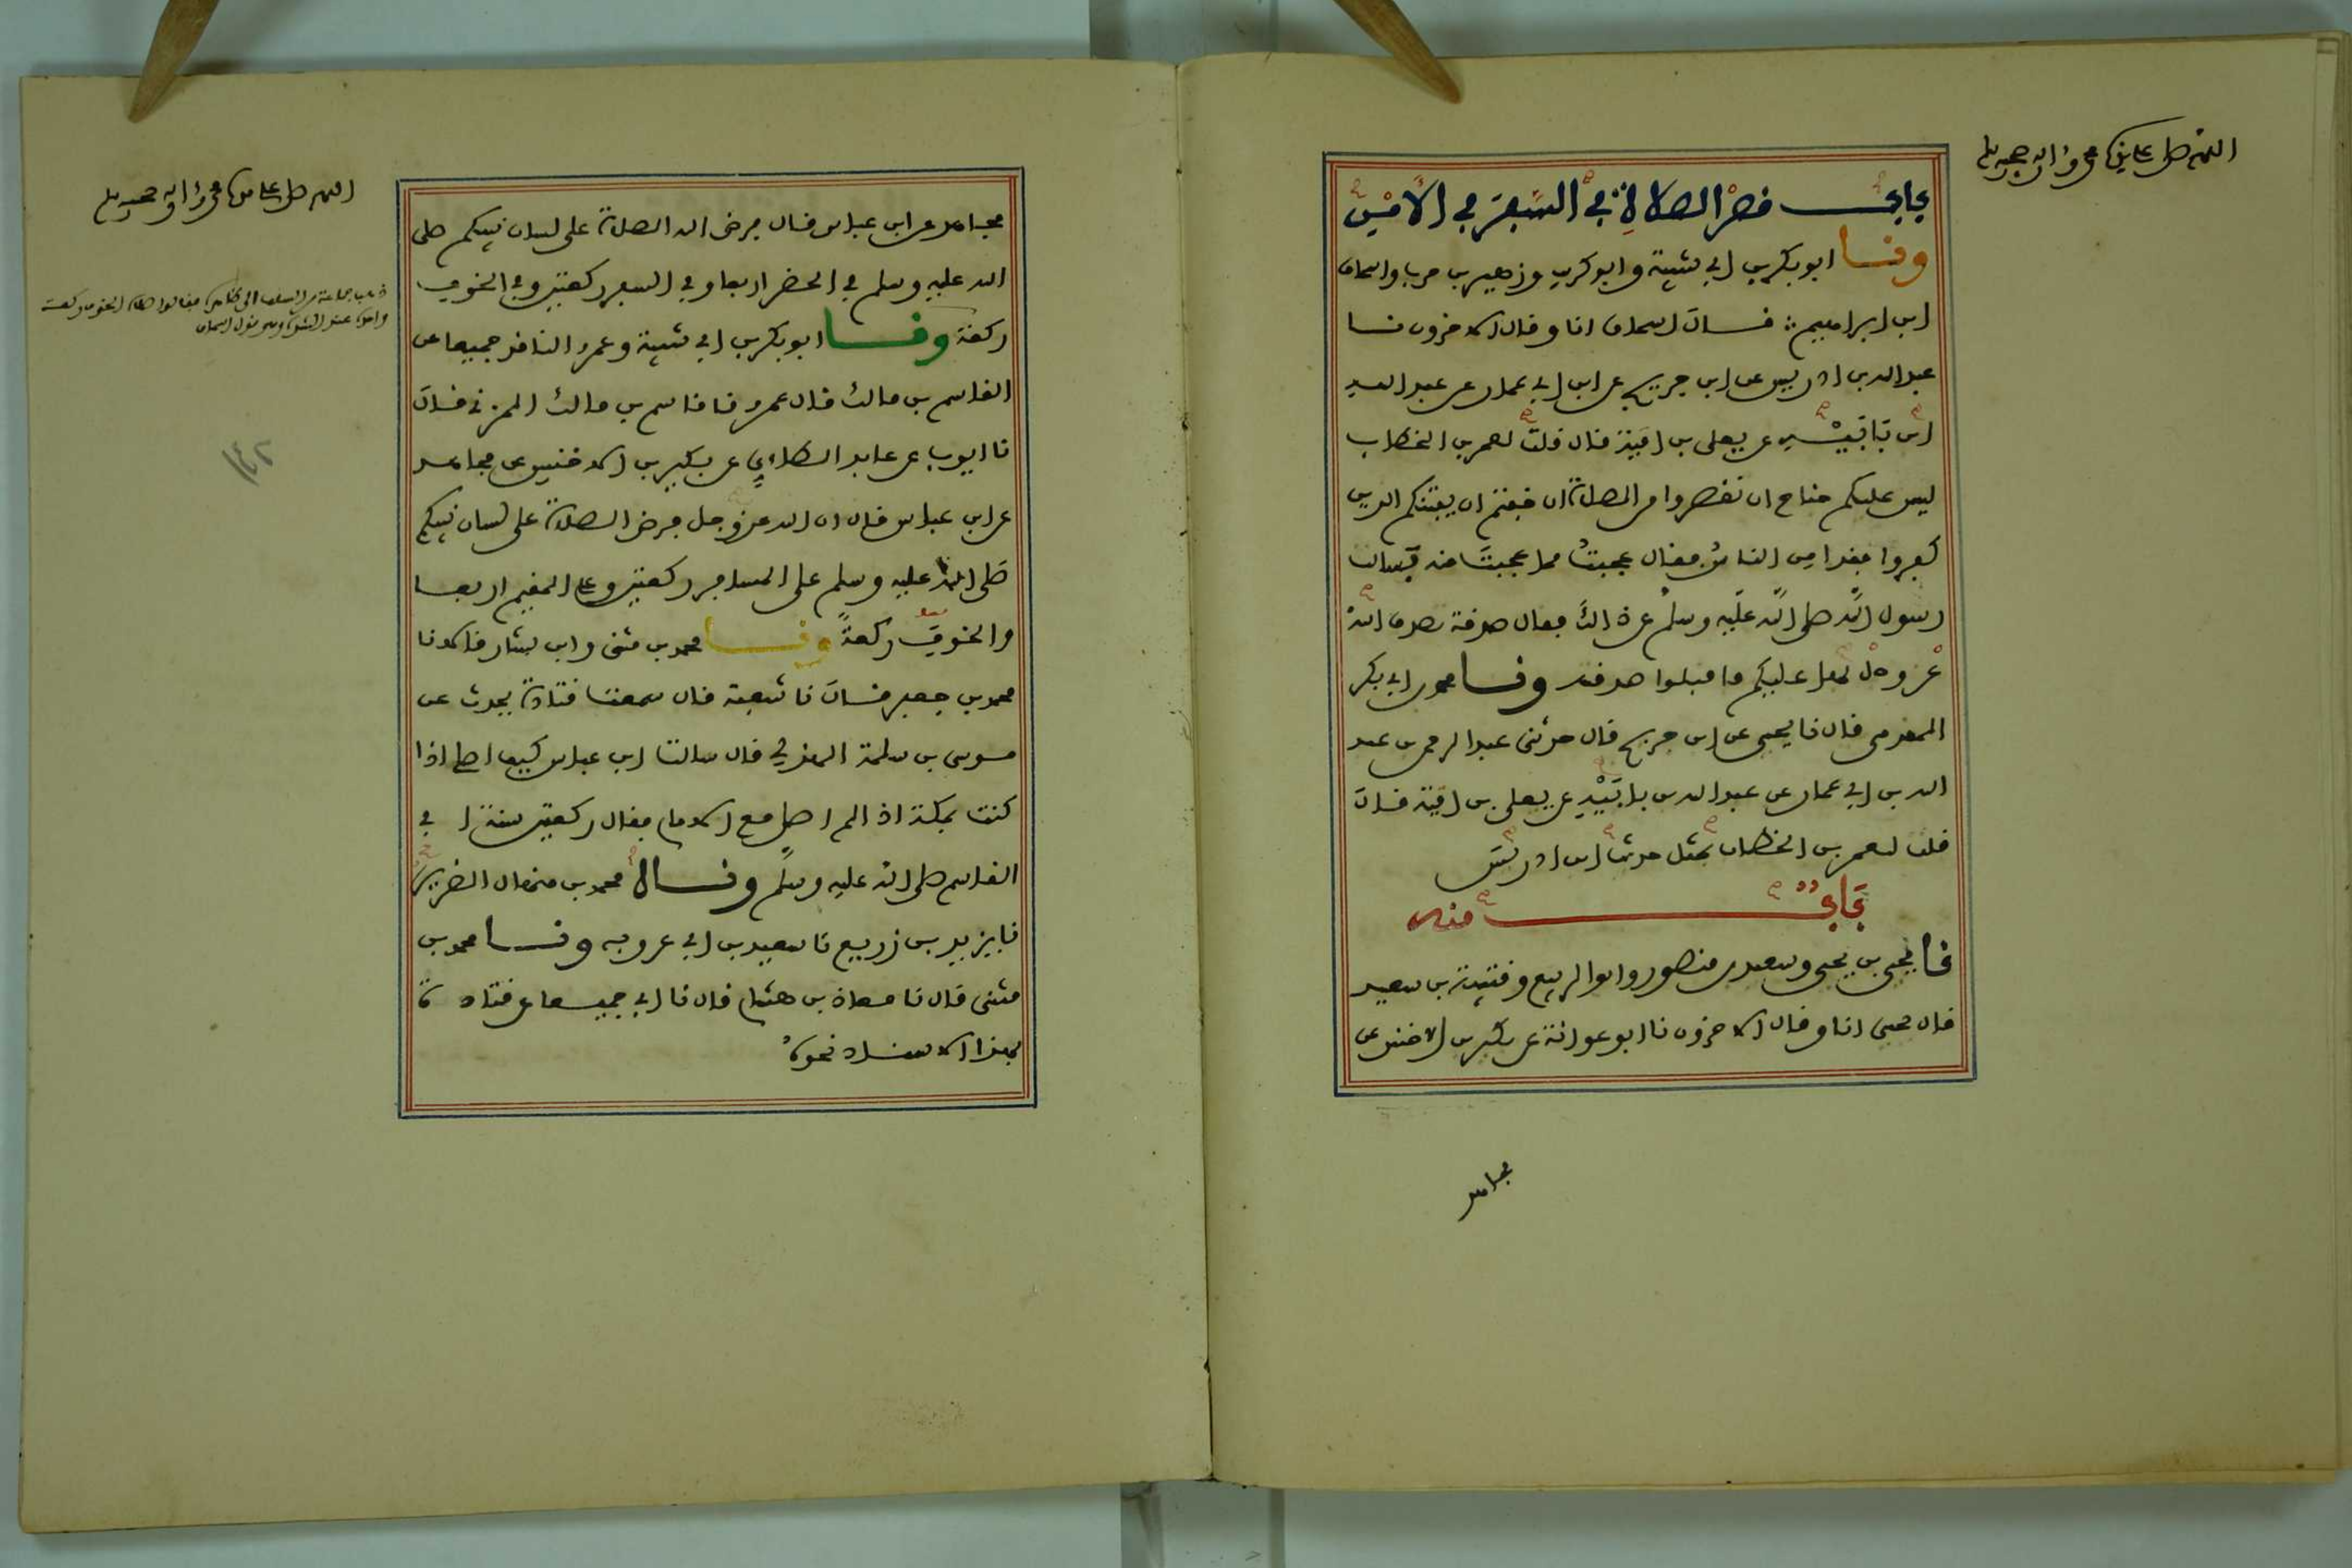 اللهم صل على سيدنا محمد وآله وصحبه وسلم
باب قصر الصلاة في السفر في الأمن
وفنا ابو بكر بن ابي شيبة وابو كريب وزهير بن حرب واسحاق
ابن ابراهيم قال اسحاق انا وقال الاخرون نا
عبد الله بن ادريس عن ابن جريج عن ابن ابي عمار عن عبد الله
ابن بابيه عن يعلى بن امية قال قلت لعمر بن الخطاب
ليس عليكم جناح ان تقصروا من الصلاة ان خفتم ان يفتنكم الذين
كفروا فقد امن الناس فقال عجبت مما عجبت منه فسالت
رسول الله صلى الله عليه وسلم عن ذالك فقال صدقة تصدق الله
عز وجل بها عليكم فاقبلوا صدقته ونا محمد بن ابي بكر
المقدمي قال نا يحيى عن ابن جريج قال حدثني عبد الرحمن بن عبد
الله بن ابي عمار عن عبد الله بن بابيه عن يعلى بن امية قال
قلت لعمر بن الخطاب بمثل حديث ابن ادريس
باب منه
نا يحيى بن يحيى وسعيد بن منصور وابو الربيع وقتيبة بن سعيد
قال يحيى انا وقال الاخرون نا ابو عوانة عن بكير بن الاخنس عن
مجاهد
اللهم صل على سيدنا محمد وآله وصحبه وسلم
مجاهد عن ابن عباس قال فرض الله الصلاة على لسان نبيكم صلى
الله عليه وسلم في الحضر اربعا وفي السفر ركعتين وفي الخوف
ركعة ونا ابو بكر بن ابي شيبة وعمرو الناقد جميعا عن
القاسم بن مالك قال عمرو نا قاسم بن مالك المزني قال
نا ايوب بن عايذ الطاءي عن بكير بن الاخنس عن مجاهد
عن ابن عباس قال ان الله عز وجل فرض الصلاة على لسان نبيكم
صلى الله عليه وسلم على المسافر ركعتين وعلى المقيم اربعا
والخوف ركعة ونا محمد بن مثنى وابن بشار قالا نا
محمد بن جعفر قال نا شعبة قال سمعت قتادة يحدث عن
موسى بن سلمة الهذلي قال سالت ابن عباس كيف اصلي اذا
كنت بمكة اذا لم اصل مع الامام فقال ركعتين سنة ابي
القاسم صلى الله عليه وسلم ونا محمد بن منهال الضرير
نا يزيد بن زريع نا سعيد بن ابي عروبه ونا محمد بن
مثنى قال نا معاذ بن هشام قال نا ابي جميعا عن قتادة
بهذا الاسناد نحوه
ذهب جماعة من السلف الى ظاهره فقالوا صلاة الخوف ركعة
١٤٢